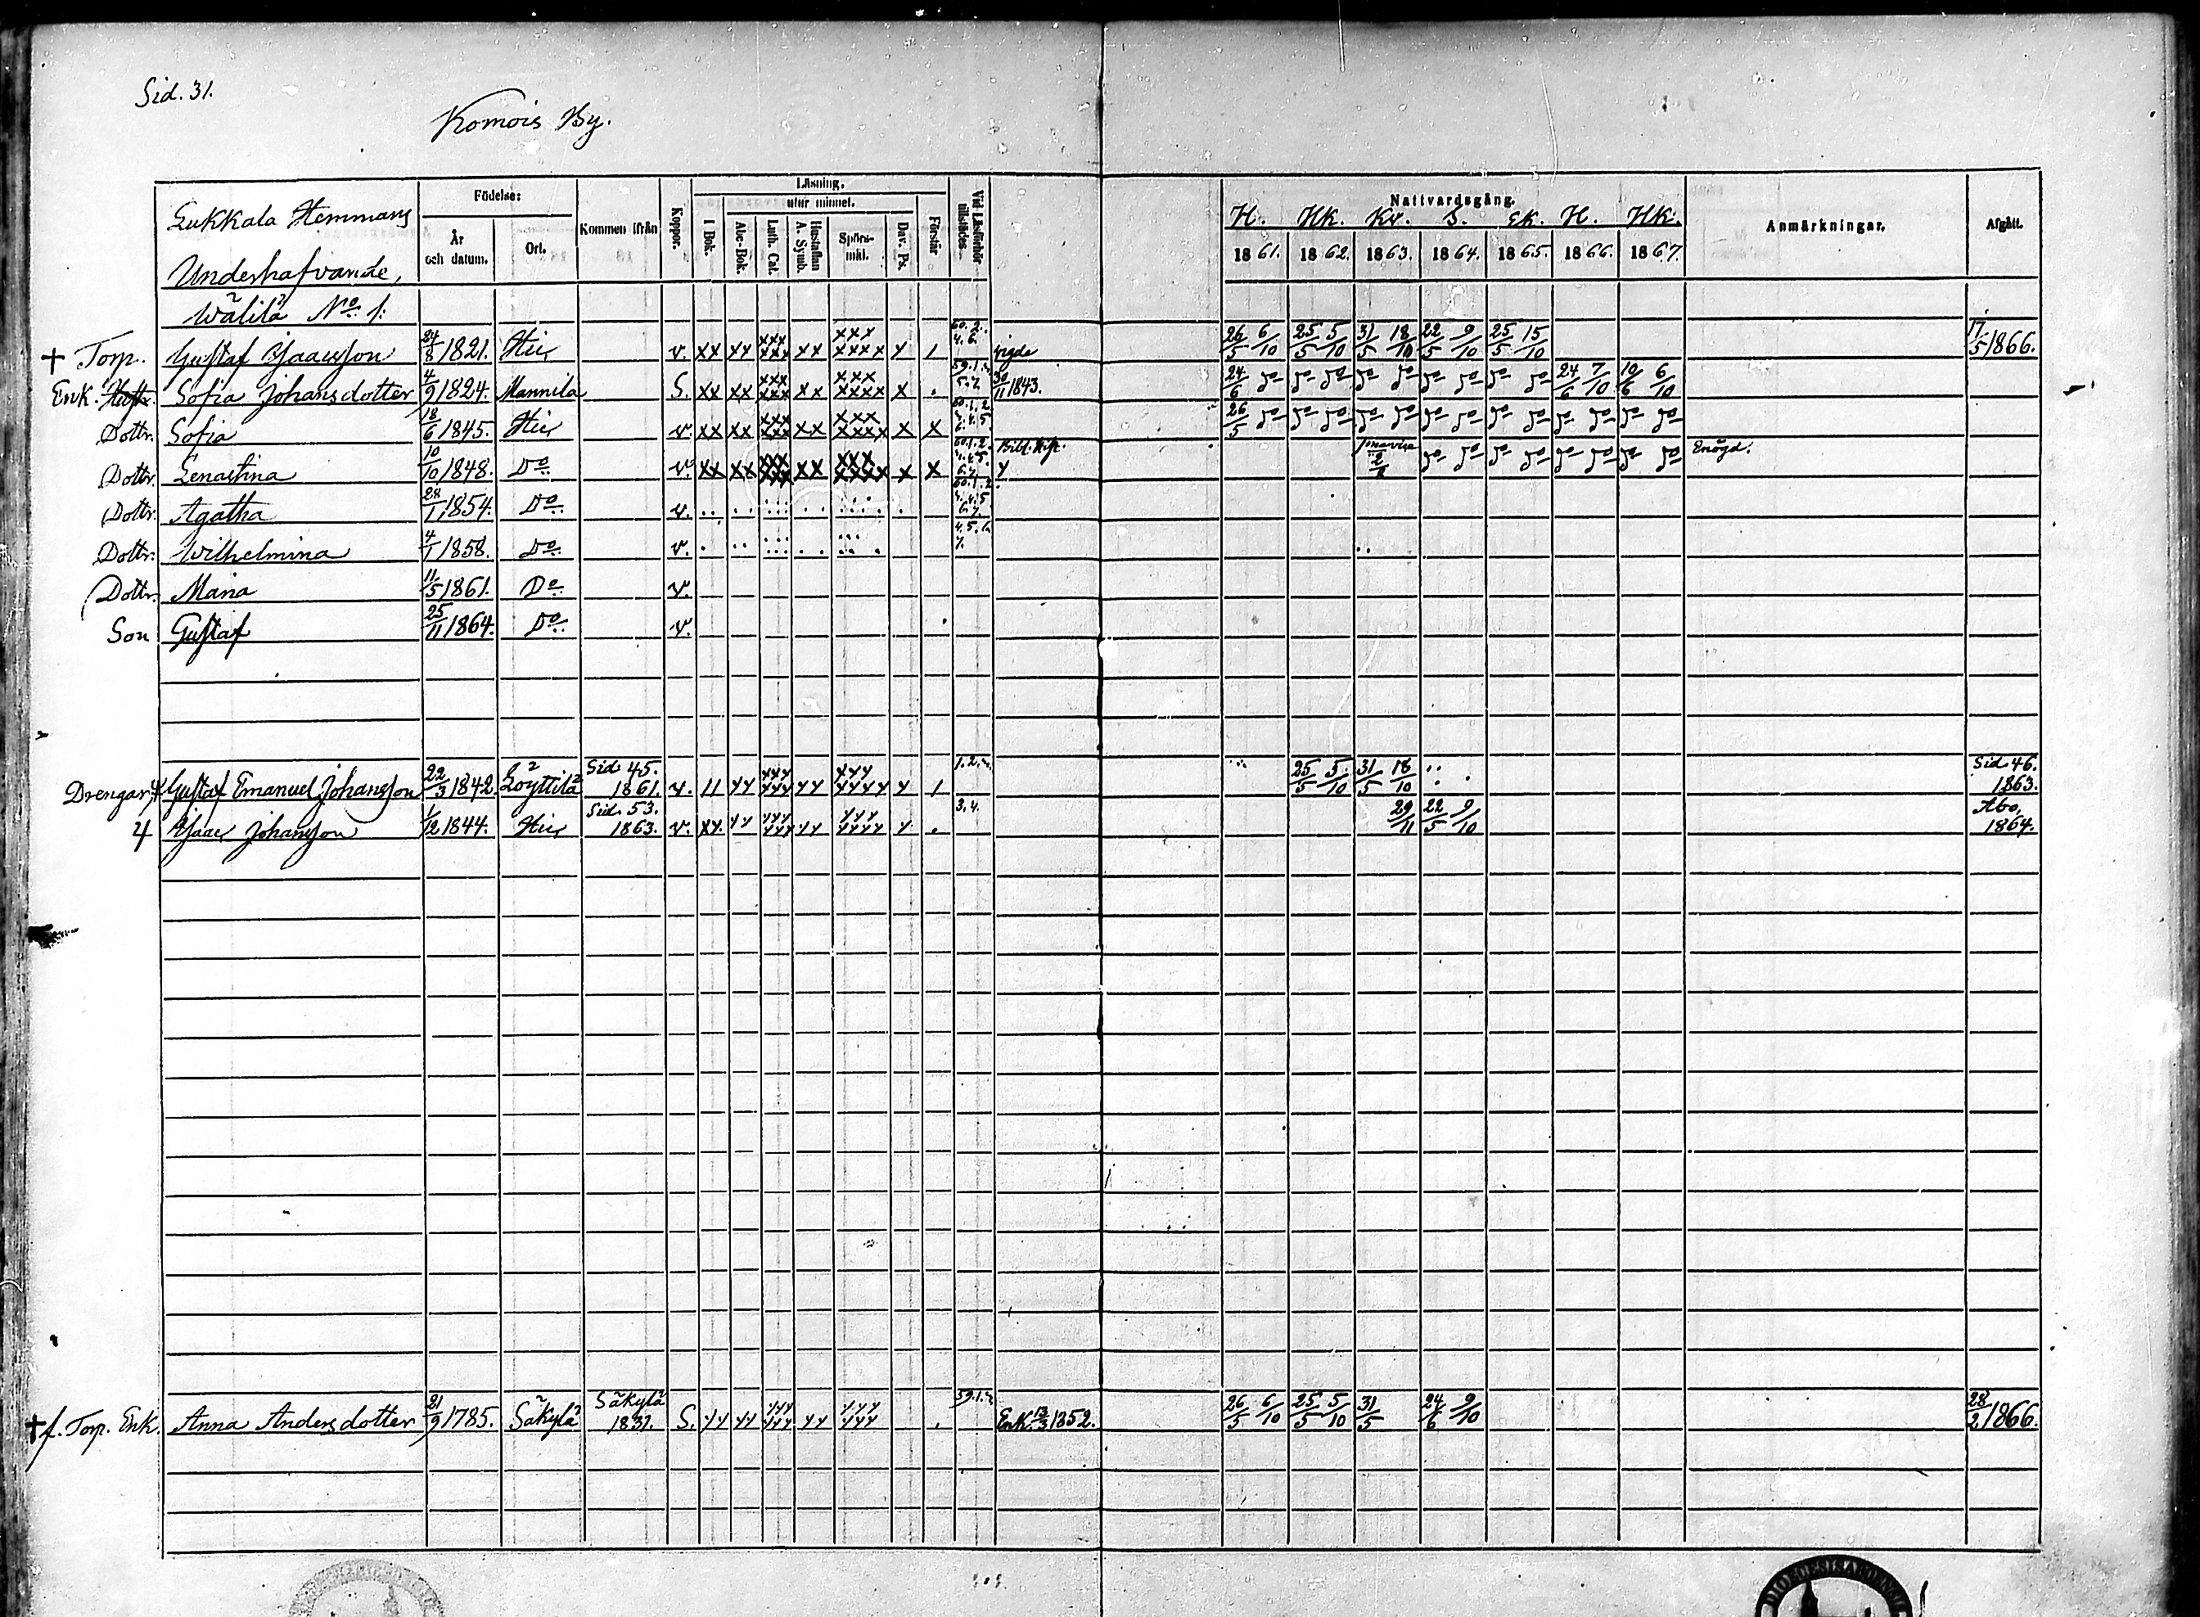 Sid. 31.
Komois By.
Lukkala Hemmans
Underhafvande,
Wälilä No 1:
Födelse:
År och datum.
Ort.
Kommen ifrån
Koppor.
Läsning.
utur minnet.
I Bok.
Abc-Bok.
Luth. Cat.
Hustaflan A. Symb.
Spörsmål.
Dav. Ps.
Förstår
Vid Läsförhör tillstädes
Nattvardsgång.
H. Hk. Kv. S. Ek. H. Hk.
1861. 1862. 1863. 1864. 1865. 1866. 1867.
Anmärkningar.
Afgått.
† Torp. Gustaf Isaacsson 24/8 1821. Här v. xx xx xxx xxx xx xxx xxxx x / 60. 2. 4. 6. vigde 26/5 6/10 25/5 5/10 31/5 18/10 22/5 9/10 25/5 15/10 17/5 1866.
Enk. Hustr. Sofia Johansdotter 4/9 1824. Mannila S. xx xx xxx xxx xx xxx xxxx x . 30/11 1843. 24/6 do do do do do do do do do 24/6 7/10 10/6 6/10
Dottr. Sofia 18/6 1845. Här v. xx xx xxx xxx xx xxx xxxx x x 26/5 do do do do do do do do do do do do do
Dottr. Lenastina 10/10 1848. Do v. xx xx xxx xxx xx xxx xxxx x x do do do do do do do do Enögd.
Dottr. Agatha 28/1 1854. Do v.
Dottr. Wilhelmina 4/1 1858. Do v. 4. 5. 6. 7.
Dottr. Maria 11/5 1861. Do v.
Son Gustaf 25/11 1864. Do v.
Drengar Gustaf Emanuel Johansson 22/3 1842. Löyttilä Sid 45. 1861. v. 25/5 5/10 31/5 18/10 Sid 46. 1863.
Isaac Johansson 1/12 1844. Här Sid. 53. 1863. v. 3. 4. 29/11 22/5 9/10 Åbo, 1864.
† f. Torp. Enk. Anna Andersdotter 21/9 1785. Säkylä Säkylä 1831. S. Enk. 13/3 1852. 26/5 6/10 25/5 5/10 31/5 24/6 9/10 28/2 1866.